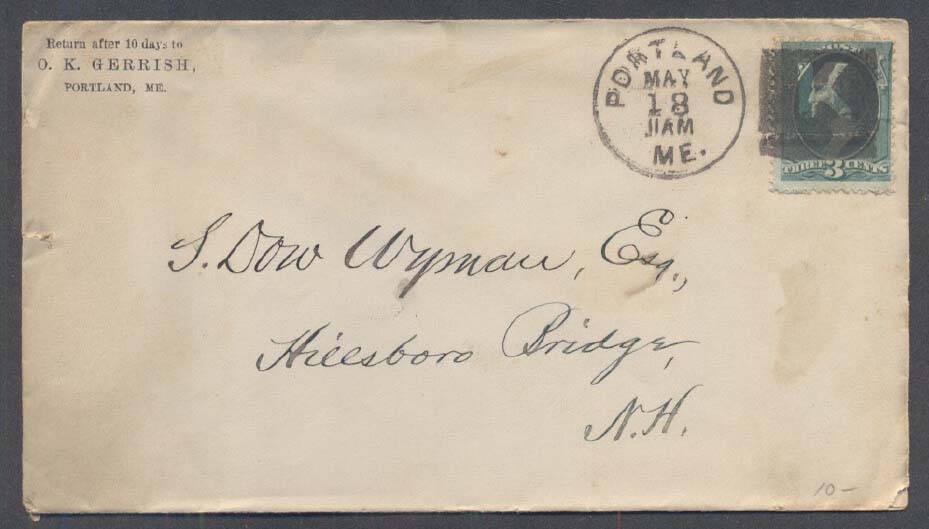 Return after 10 days to
O. K. GERRISH,
PORTLAND, ME.
PORTLAND
MAY
18
11AM
ME.
THREE 3 CENTS
S. Dow Wyman, Esq.,
Hillsboro Bridge,
N.H.
10-